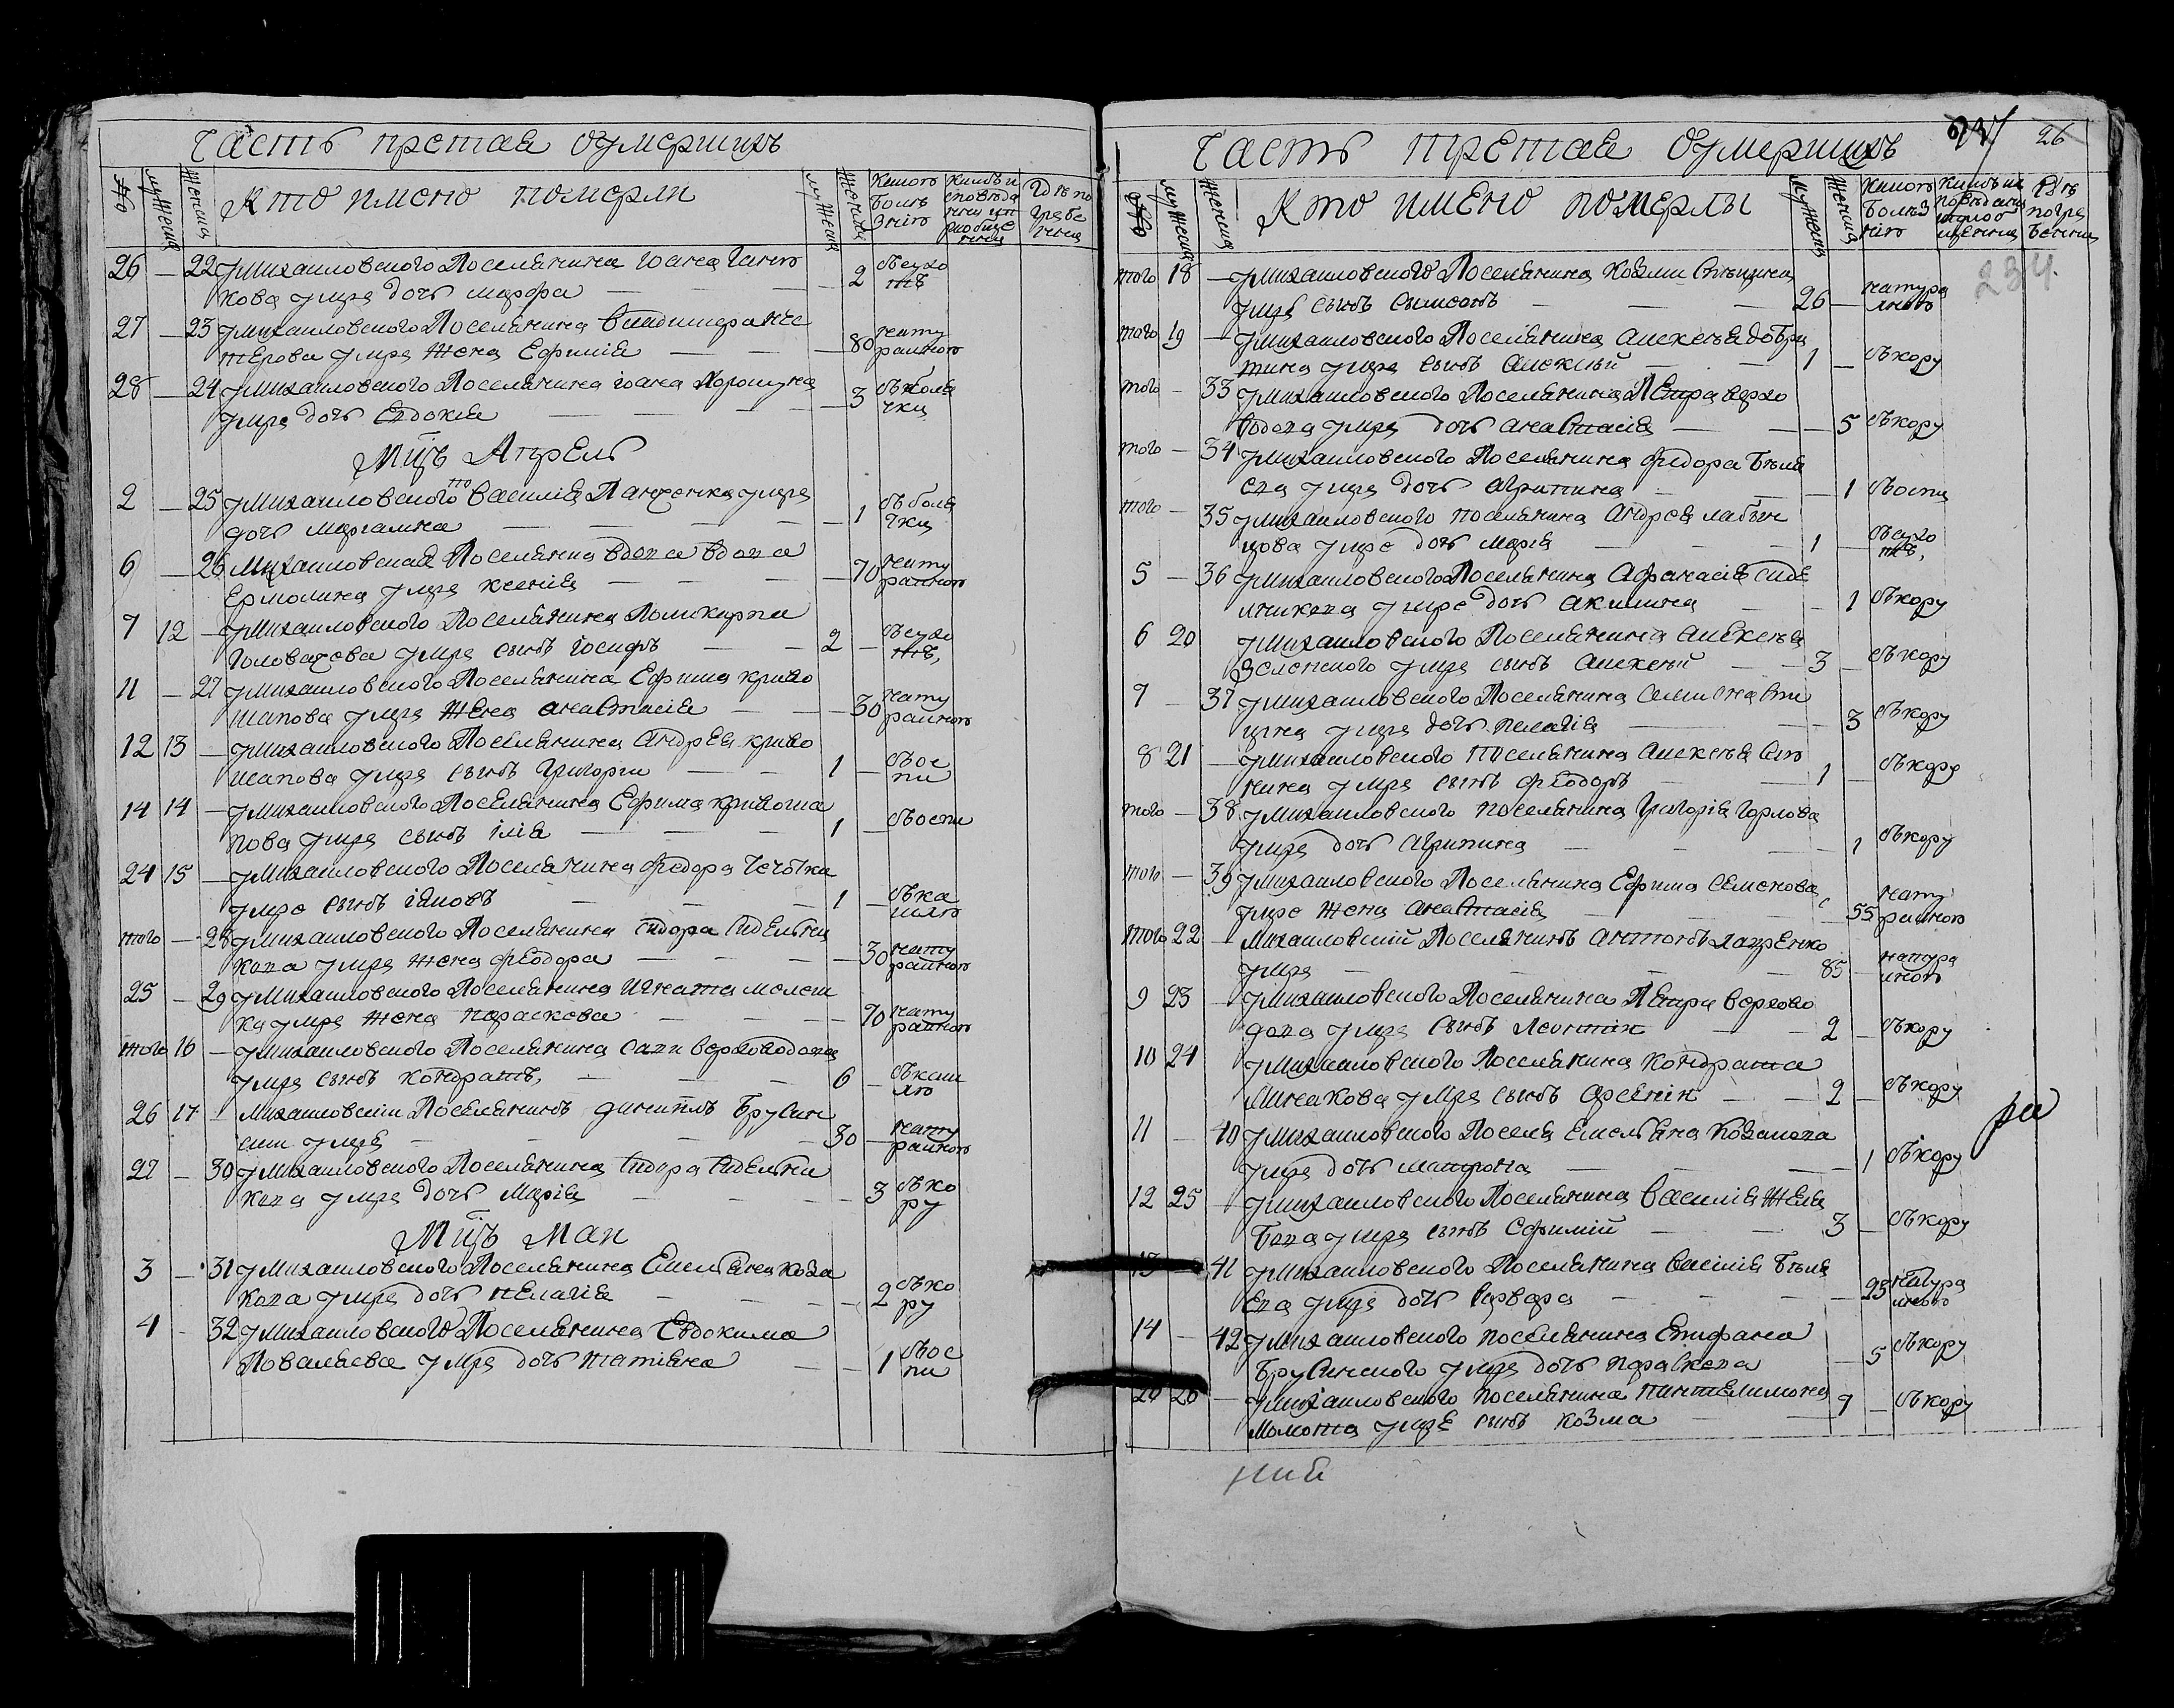 Часть третая оумершихъ
Число
мужеска
женска
Кто имено померли
мужеска
женска
Какою
болѣ
знію
Кимъ и
сповѣда
ни и прі
обще
ны
Гдѣ по
гребе
ны
26 — 22 У михаиловского Поселянина Іоана
кова умре дочь марфа — 2 съсухо
тъ
27 — 23 У михаиловского Поселянина владимира Нес
терова умре жена Ефимія — 80 нату
ралною
28 — 24 У михаиловского Поселянина Іоана Хорошуна
умре дочь Евдокія — 3 съболя
чки
Мцъ Апрель
2 — 25 У Михаиловского по Василія Панченка умре
дочь Маргалина — 1 съболя
чки
6 — 26 Михаиловская Поселянка вдова вдова
Ермолина умре ксенія — 70 нату
ралною
7 12 — У Михаиловского Поселянина Поликарпа
Головачева умре сынъ Іосифъ — 2 — съсухо
тъ,
11 — 27 У Михаиловского Поселянина Ефима криво
шапова умре жена анастасія — 30 нату
ралною
12 13 — У михаиловского Поселянина Андрея криво
шапова умре сынъ Григории — 1 — съос
пи
14 14 — У михаиловского Поселянина Ефима кривоша
пова умре сынъ ілія — 1 — съоспи
24 15 — У Михаиловского Поселянина федора
умре сынъ іяковъ — 1 — съка
шлю
того — 28 У михаиловского Поселянина Сидора Сидельни
кова умре жена феодора — 30 нату
ралною
25 — 29 У Михаиловского Поселянина Игната
ка умре жена параскова — 70 нату
ралною
того 16 — У михаиловского Поселянина савы верховодова
умре сынъ кондратъ, — 6 — съкаш
лю
26 17 Михаиловскіи Поселянинъ даниилъ Брусин
скии умре — 30 — нату
ралною
27 — 30 У михаиловского Поселянина Сидора Сидельни
кова умре дочь Марія — 3 съко
ру
Мцъ Маи
3 — 31 У Михаиловского Поселянина Емельяна коза
кова умре дочь пелагія — 2 съко
ру
4 — 32 У михаиловского Поселянина Евдокима
Ковалева умре дочь татіяна — 1 съос
пи
Часть третая оумершихъ
26
234
Число
мужеска
женска
Кто имено померлы
мужеска
женска
Какою
болѣз
нію
Гдѣ
погре
бенны
того 18 — У михаиловского Поселянина Козми Спицина
умре сынъ сымеонъ — 26 — натура
лною
того 19 — У михаиловского Поселянина алексея добри
тина умре сынъ алексѣй — 1 — съкору
того — 33 У михаиловского Поселянина Петра верхо
водова умре дочь анастасія — 5 съкору
того — 34 У михаиловского Поселянина федора Бѣля
ева умре дочь агрипина — 1 съоспи
того — 35 У михаиловского поселянина андрея лабин
цова умре дочь марія — 1 — съсухо
тъ,
5 — 36 У михаиловского Поселянина Афанасія сиде
лникова умре дочь акилина — 1 съкору
6 20 У михаиловского Поселянина алексѣя
Зеленского умре сынъ алексѣй — 3 — съкору
7 — 37 У михаиловского Поселянина Семиона Спи
цина умре дочь пелагія — 3 съкору
8 21 — У михаиловского Поселянина алексѣя
кина умре сынъ феодоръ — 1 — съкору
того — 38 У михаиловского поселянина Григорія Горлова
умре дочь агрипина — 1 съкору
того — 39 У михаиловского Поселянина Ефима Семенова
умре жена анастасія — 55 нату
ралною
того 22 — Михаиловскій Поселянинъ антонъ лавренко
умре — 85 — натура
лною
9 23 — У михаиловского Поселянина Петра верхово
дова умре сынъ Леонтіи — 2 — съкору
10 24 У михаиловского Поселянина кондрата
Минакова умре сынъ арсеніи — 2 — съкору
11 — 40 У михаиловского Поселя Емельяна козакова
умре дочь матрона — 1 съкору
12 25 — У михаиловского Поселянина Василія Желя
бова умре сынъ Ефимій — 3 — съкору
13 — 41 У михаиловского Поселянина Василія Бѣля
ева умре дочь варвара — 23 натура
лною
14 — 42 У михаиловского поселянина Епифана
Брусинского умре дочь параскева — 5 съкору
24 26 — У михаиловского поселянина пантелимона
Молота умре сынъ козма — 9 — съкору